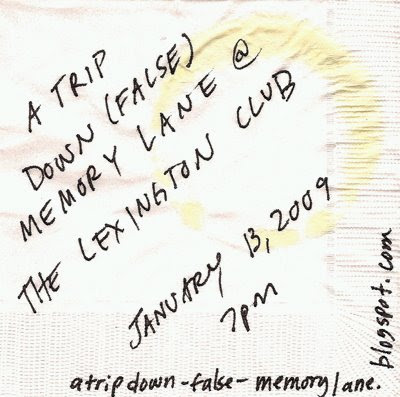 A TRIP
DOWN (FALSE)
MEMORY LANE @
THE LEXINGTON CLUB
JANUARY 13, 2009
7pm
atripdown-false-memorylane.
blogspot.com